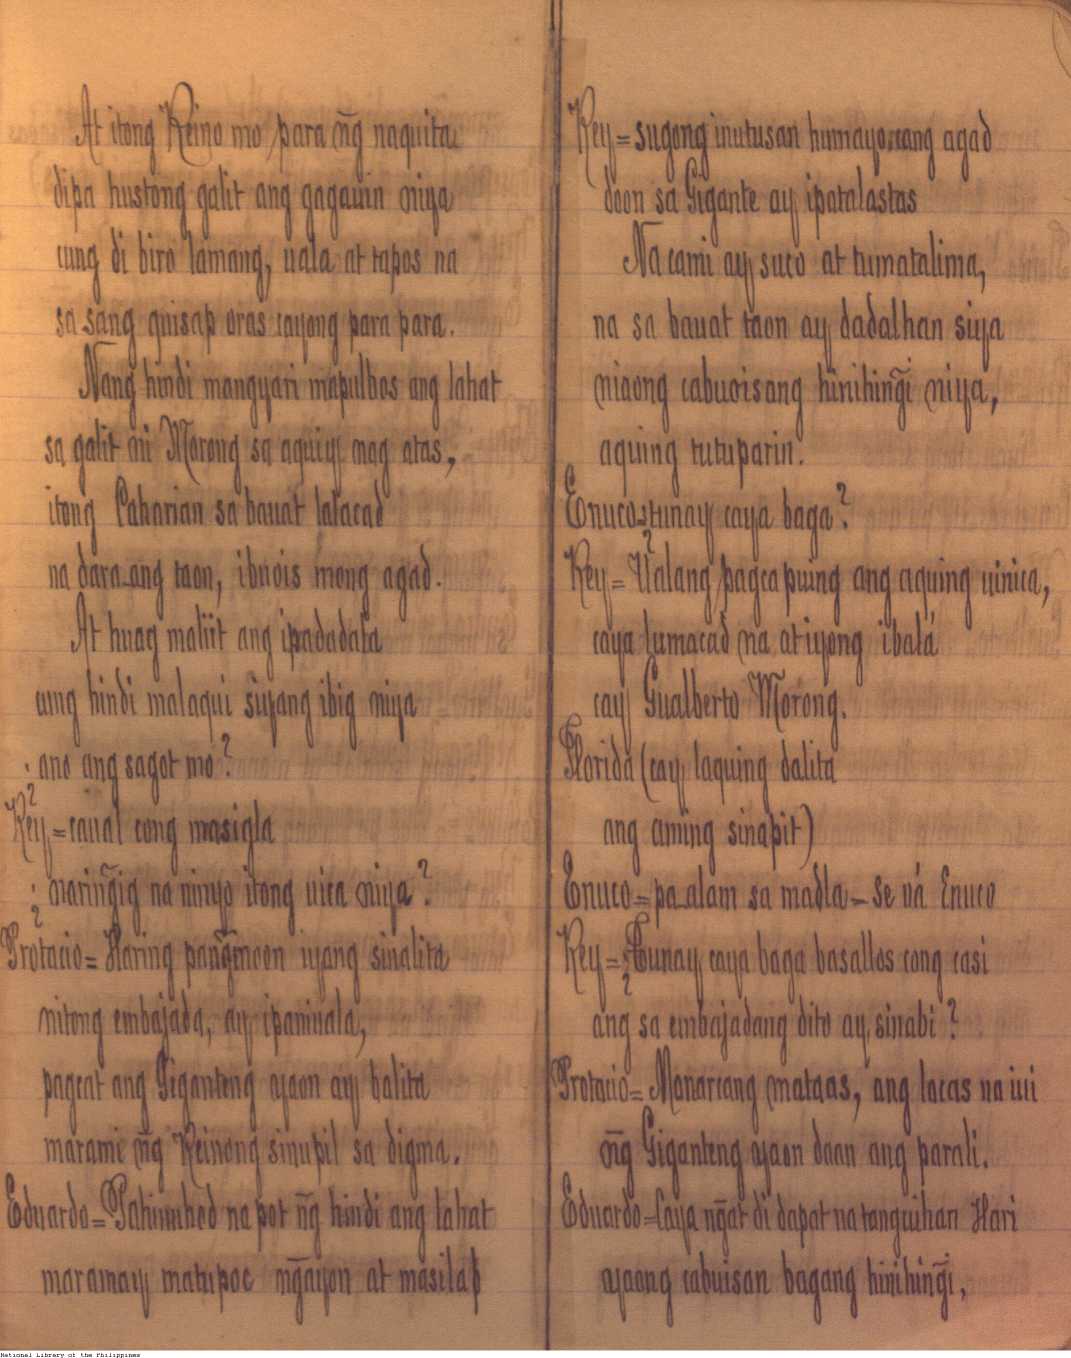 At itong Reino mo para n̄g naquita
dipa hustong galit ang gagauin niya
cung di biro lamang, uala at tapos na
sa sang guisap oras cayong para para.
Nang hindi mangyari mapulbos ang lahat
sa galit ni Morong sa aquiyȷ mag atas,
itong Caharian sa bauat lalacad
na dara-ang taon, ibuois mong agad.
At huag maliit ang ipadadala
cung hindi malaqui siyang ibig niya
¿ano ang sagot mo?
Rey,=caual cong masigla
¿naring̃ig na ninyo itong uica niya?
Protacio= Haring pañg̃inoon iyang sinalita
nitong embajada, ay ipaniuala,
pagcat ang Giganteng ayaon ay balita
marami n̄g Reinong sinupil sa digma.
Eduardo=Pahinuhod na pot n̄g hindi ang lahat
maramay matupoc n̄gayon at masilap
Rey=sugong inutusan humayo,cang agad
doon sa Gigante ay ipatalastas
Na cami ay suco at tumatalima,
na sa bauat taon ay dadalhan siya
niaong cabuoisang hinihing̃i niya,
aquing tutuparin.
Enuco=¿tunay caya baga?
Rey=Ualang pagcapuing ang aquing uinica,
caya lumacad na at iyong ibalá
cay Gualberto Morong.
Florida (cay laquing dalita
ang aming sinapit)
Enuco=pa-alam sa madla-Se vá Enuco
Rey=¿Tunay caya baga basallos cong casi
ang sa embajadang dito ay sinabi?
Protacio=Monarcang mataas, ang lacas na iui
n̄g Giganteng ayaon daan ang parali.
Eduardo=Caya n̄gat di dapat na tanguihan Hari
ayaong cabuisan bagang hinihing̃i,
National Library of the Philippines